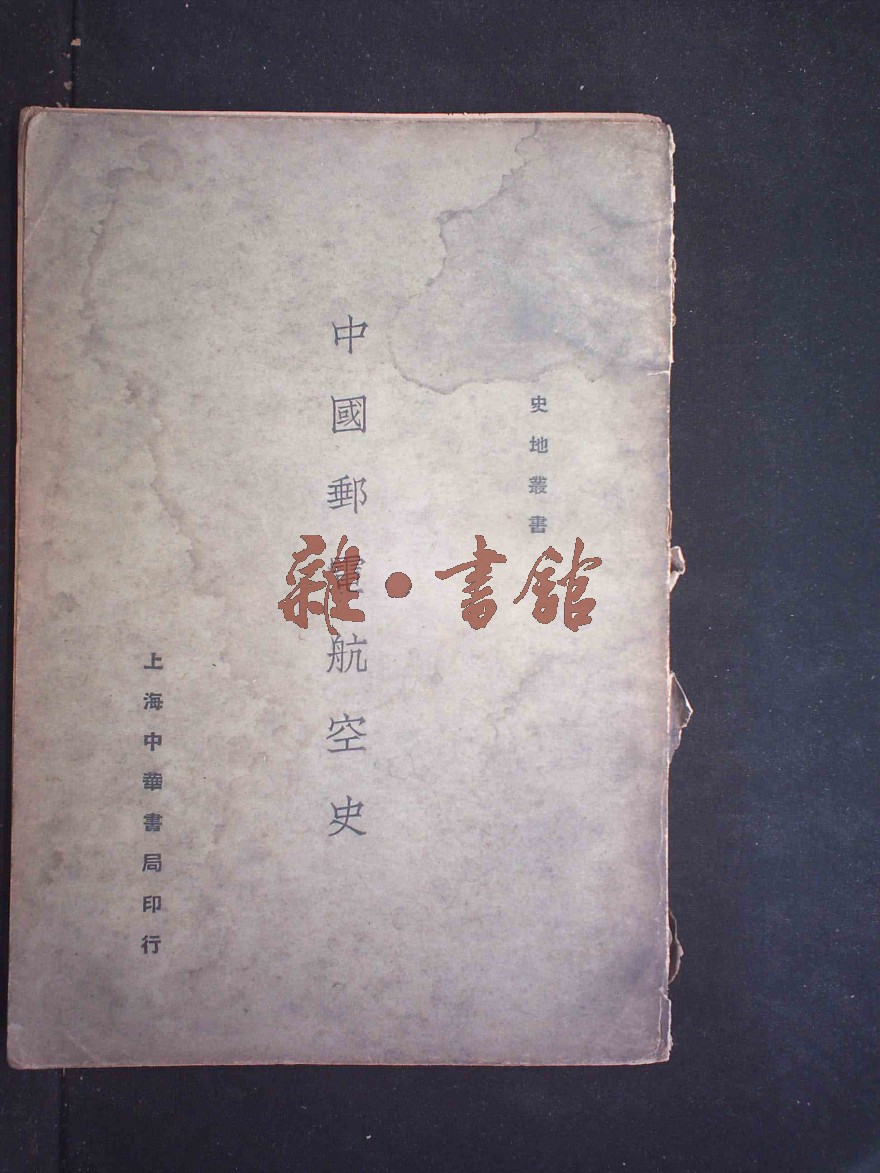 史地叢書
中國郵電航空史
上海中華書局印行
雜·書館